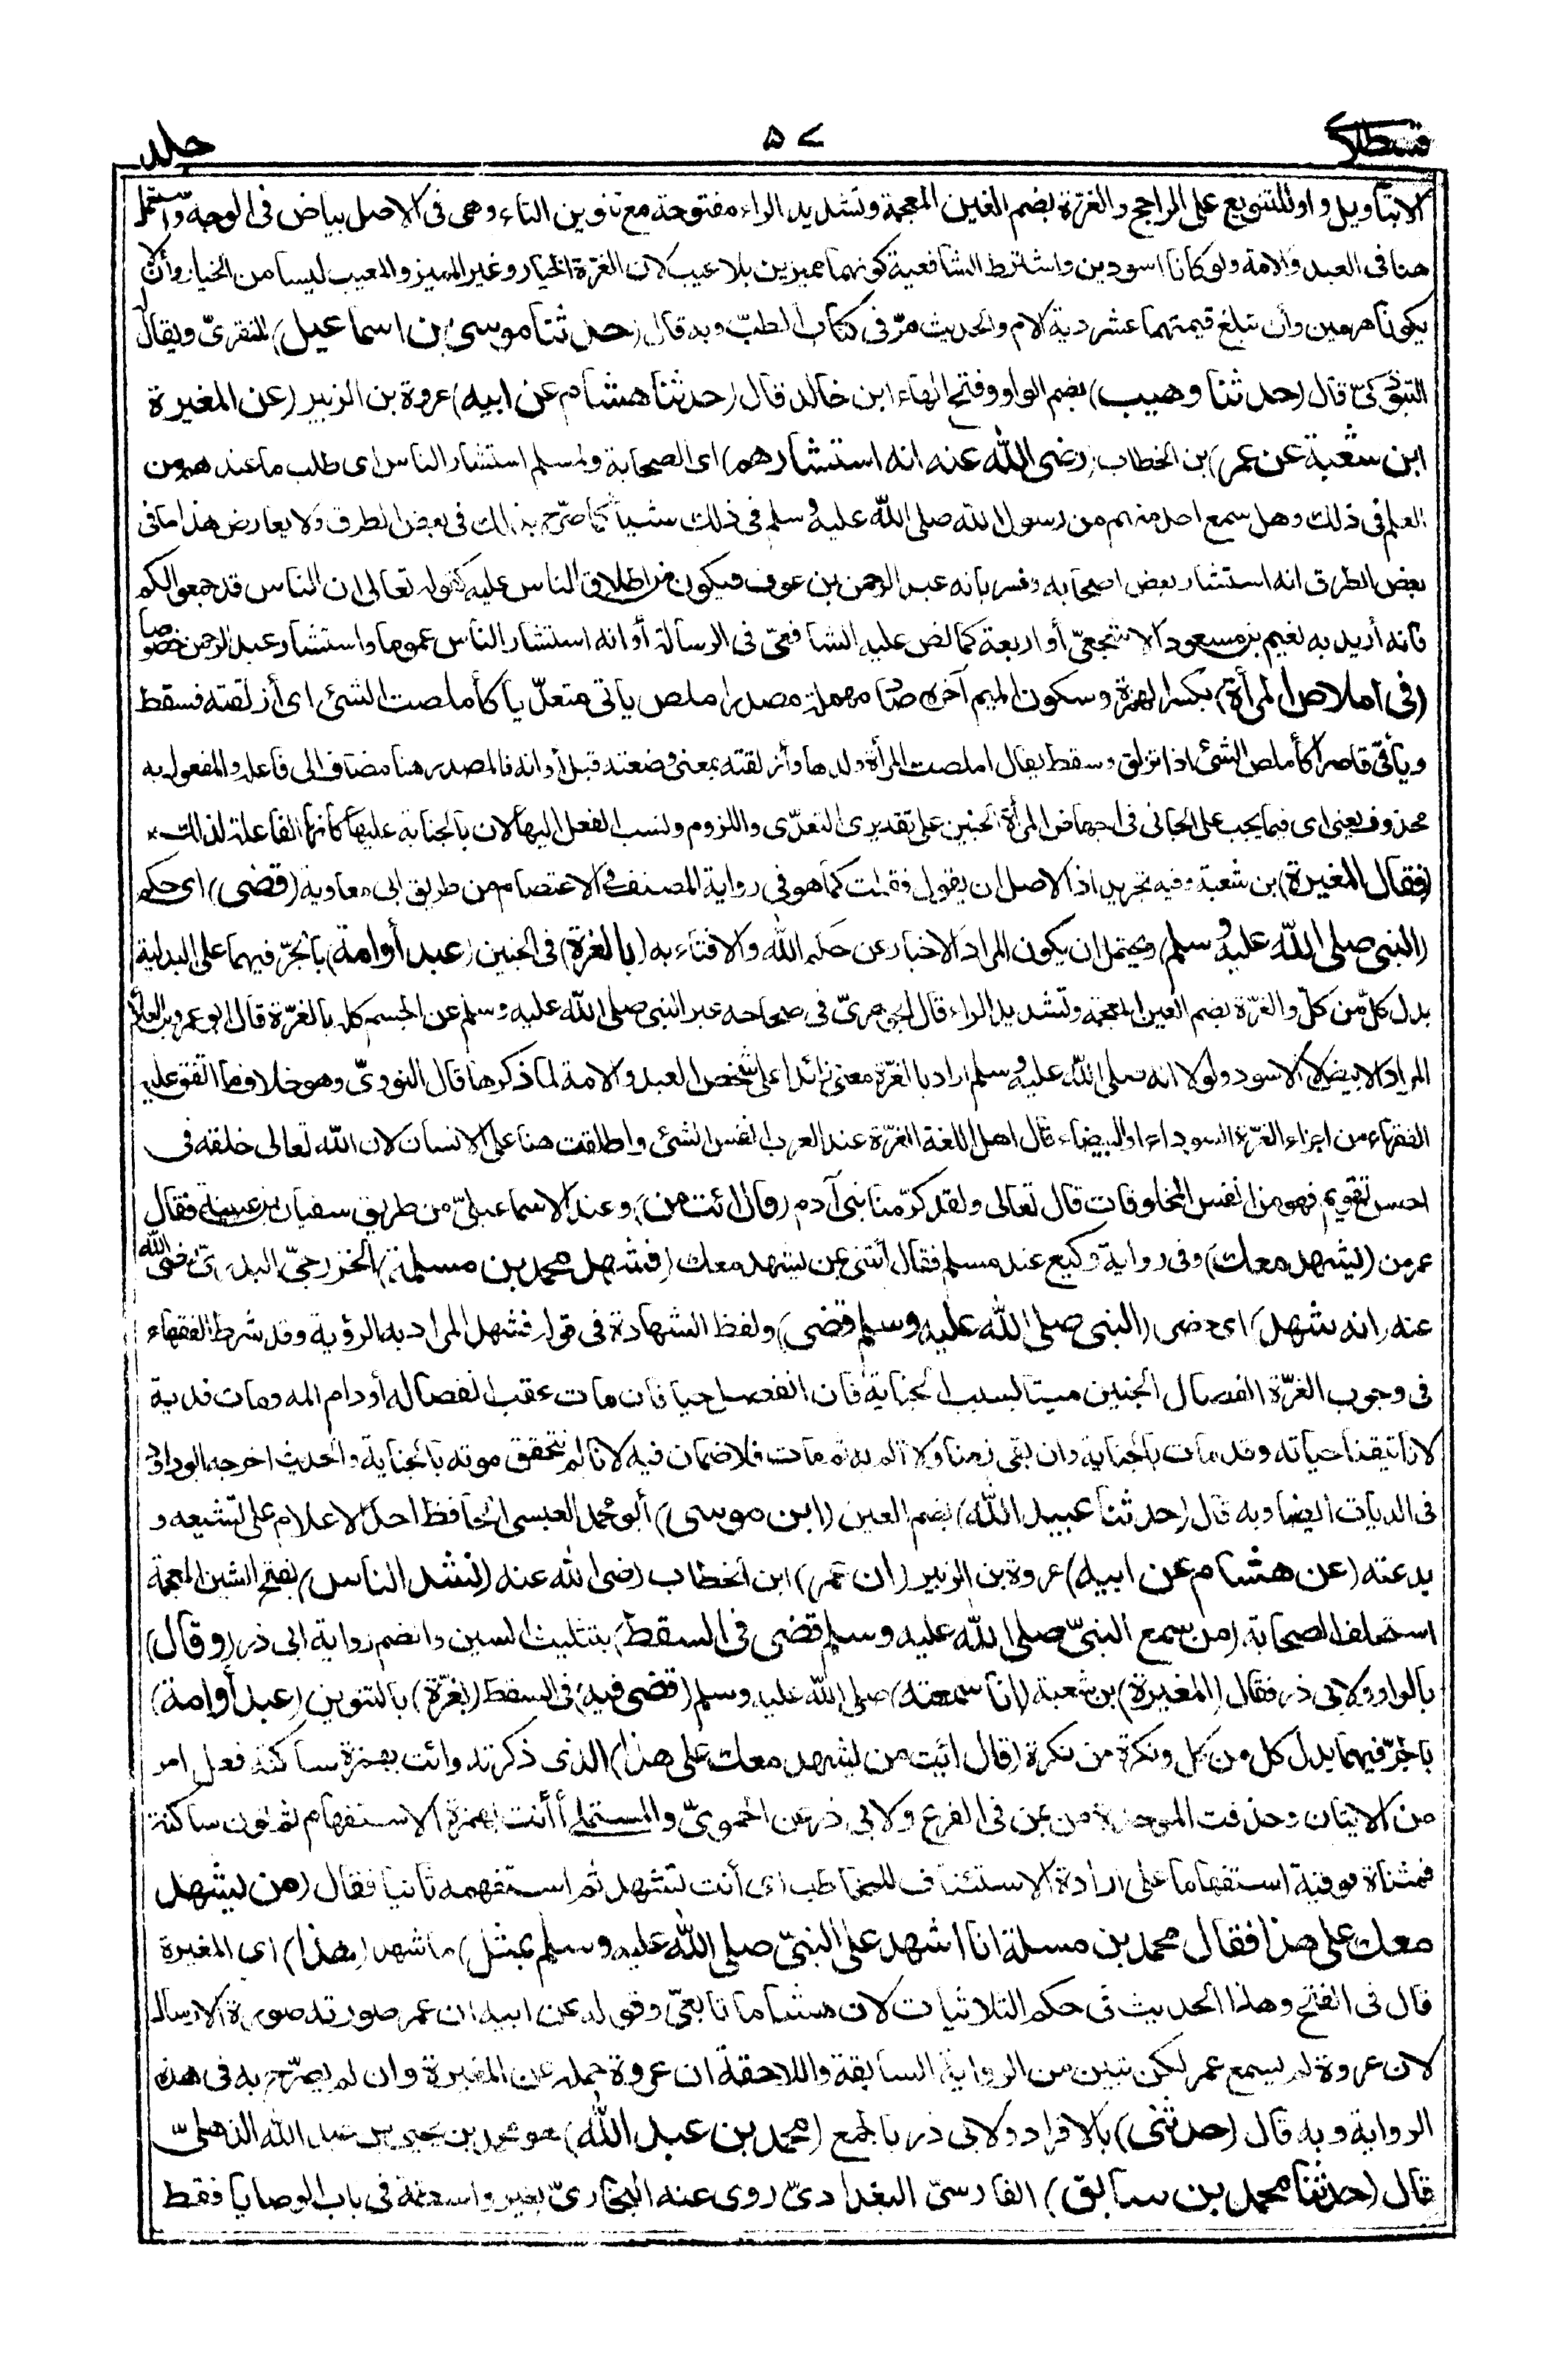 قسطلا
٥٧
جلد
الا بتأويل واو للتنويع على الراجح والغرّة بضم الغين المعجمة وتشديد الراء مفتوحة مع تنوين التاء وهي في الاصل بياض في الوجه واستعمل
هنا في العبد والامة ولو كانا اسودين واشترط الشافعية كونهما مميزين بلا عيب لان الغرّة الخيار وغير المميز والمعيب ليسا من الخيار وأن لا
يكونا هرمين وأن تبلغ قيمتهما عشر دية الام والحديث مرّ في كتاب الطبّ وبه قال (حدثنا موسى بن اسماعيل) المنقرىّ ويقال له
التبوذكىّ قال (حدثنا وهيب) بضم الواو وفتح الهاء ابن خالد قال (حدثنا هشام عن ابيه) عروة بن الزبير (عن المغيرة
ابن شعبة عن عمر) بن الخطاب (رضى الله عنه انه استشارهم) اى الصحابة ولمسلم استشار الناس اى طلب ما عندهم من
العلم في ذلك وهل سمع احد منهم من رسول الله صلى الله عليه وسلم في ذلك شيأ كما صرّح بذلك في بعض الطرق ولا يعارض هذا ما في
بعض الطرق انه استشار بعض اصحابه وفسر بانه عبد الرحمن بن عوف فيكون من اطلاق الناس عليه كقوله تعالى ان الناس قد جمعوا لكم
فانه أريد به نعيم بن مسعود الاشجعىّ أو اربعة كما نص عليه الشافعىّ في الرسالة أو انه استشار الناس عموما واستشار عبد الرحمن خصوصا
(في املاص المرأة) بكسر الهمزة وسكون الميم آخره صاد مهملة مصدر املص يأتى متعدّيا كأملصت الشئ اى أزلقته فسقط
ويأتى قاصرا كأملص الشئ اذا تزلق وسقط يقال املصت المرأة ولدها وأزلقته بمعنى وضعته قبل أوانه فالمصدر هنا مضاف الى فاعله والمفعول به
محذوف يعنى اى فيما يجب على الجانى في اجهاض المرأة الجنين على تقديرى التعدّى واللزوم ونسب الفعل اليها لان بالجناية عليها كأنها الفاعلة لذلك
(فقال المغيرة) بن شعبة وفيه تجريد اذ الاصل ان يقول فقلت كما هو في رواية المصنف في الاعتصام من طريق ابى معاوية (قضى) اى حكم
(النبى صلى الله عليه وسلم) ويحتمل ان يكون المراد الاخبار عن حكم الله والافتاء به (بالغرة) في الجنين (عبد أو امة) بالجرّ فيهما على البدلية
بدل كلّ من كلّ والغرّة بضم الغين المعجمة وتشديد الراء قال الجوهرىّ في صحاحه عبر النبى صلى الله عليه وسلم عن الجسم كله بالغرّة قال ابو عمرو بن العلاء
المراد الابيض لا الاسود ولولا انه صلى الله عليه وسلم اراد بالغرّة معنى زائدا على شخص العبد والامة لما ذكرها قال النووىّ وهو خلاف ما اتفق عليه
الفقهاء من اجزاء الغرّة السوداء او البيضاء قال اهل اللغة الغرّة عند العرب انفس الشئ واطلقت هنا على الانسان لان الله تعالى خلقه في
احسن تقويم فهو من انفس المخلوقات قال تعالى ولقد كرّمنا بنى آدم (قال ائت من) وعند الاسماعيلىّ من طريق سفيان بن عيينة فقال
عمر من (يشهد معك) وفي رواية وكيع عند مسلم فقال ائتنى بمن يشهد معك (فشهد محمد بن مسلمة) الخزرجىّ البدرىّ رضى الله
عنه (انه شهد) اى حضر (النبى صلى الله عليه وسلم قضى) ولفظ الشهادة في قوله فشهد المراد به الرؤية وقد شرط الفقهاء
في وجوب الغرّة انفصال الجنين ميتا بسبب الجناية فان انفصل حيا فان مات عقب انفصاله أو دام المه ومات فدية
لانا تيقنا حياته وقد مات بالجناية وان بقى زمنا ولا الم به ثم مات فلا ضمان فيه لانا لم نتحقق موته بالجناية والحديث اخرجه ابوداود
في الديات ايضا وبه قال (حدثنا عبيد الله) بضم العين (ابن موسى) أبو محمد العبسى الحافظ احد الاعلام على تشيعه و
بدعته (عن هشام عن ابيه) عروة بن الزبير (ان عمر) ابن الخطاب رضى الله عنه (نشد الناس) بفتح الشين المعجمة
استحلف الصحابة (من سمع النبىّ صلى الله عليه وسلم قضى في السقط) بتثليث السين والضم رواية ابى ذر (وقال)
بالواو ولابى ذر فقال (المغيرة) بن شعبة (انا سمعته) صلى الله عليه وسلم (قضى فيه) في السقط (بغرّة) بالتنوين (عبد أو امة)
بالجرّ فيهما بدل كل من كل ونكرة من نكرة (قال ائت من يشهد معك على هذا) الذى ذكرته وائت بهمزة ساكنة فعل امر
من الاتيان وحذفت الموحدة من بمن في الفرع ولابى ذر عن الحموىّ والمستملى أأنت بهمزة الاستفهام ثم نون ساكنة
فمثناة فوقية استفهاما على ارادة الاستئناف للمخاطب اى أنت تشهد ثم استفهمه ثانيا فقال (من يشهد
معك على هذا فقال محمد بن مسلمة انا اشهد على النبىّ صلى الله عليه وسلم بمثل) ما شهد (هذا) اى المغيرة
قال في الفتح وهذا الحديث في حكم الثلاثيات لان هشاما تابعىّ وقوله عن ابيه ان عمر صورته صورة الارسال
لان عروة لم يسمع عمر لكن تبين من الرواية السابقة واللاحقة ان عروة حمله عن المغيرة وان لم يصرّح به في هذه
الرواية وبه قال (حدثنى) بالافراد ولابى ذر بالجمع (محمد بن عبد الله) هو محمد بن يحيى بن عبد الله الذهلىّ
قال (حدثنا محمد بن سابق) الفارسىّ البغدادىّ روى عنه البخارىّ بغير واسطة في باب الوصايا فقط